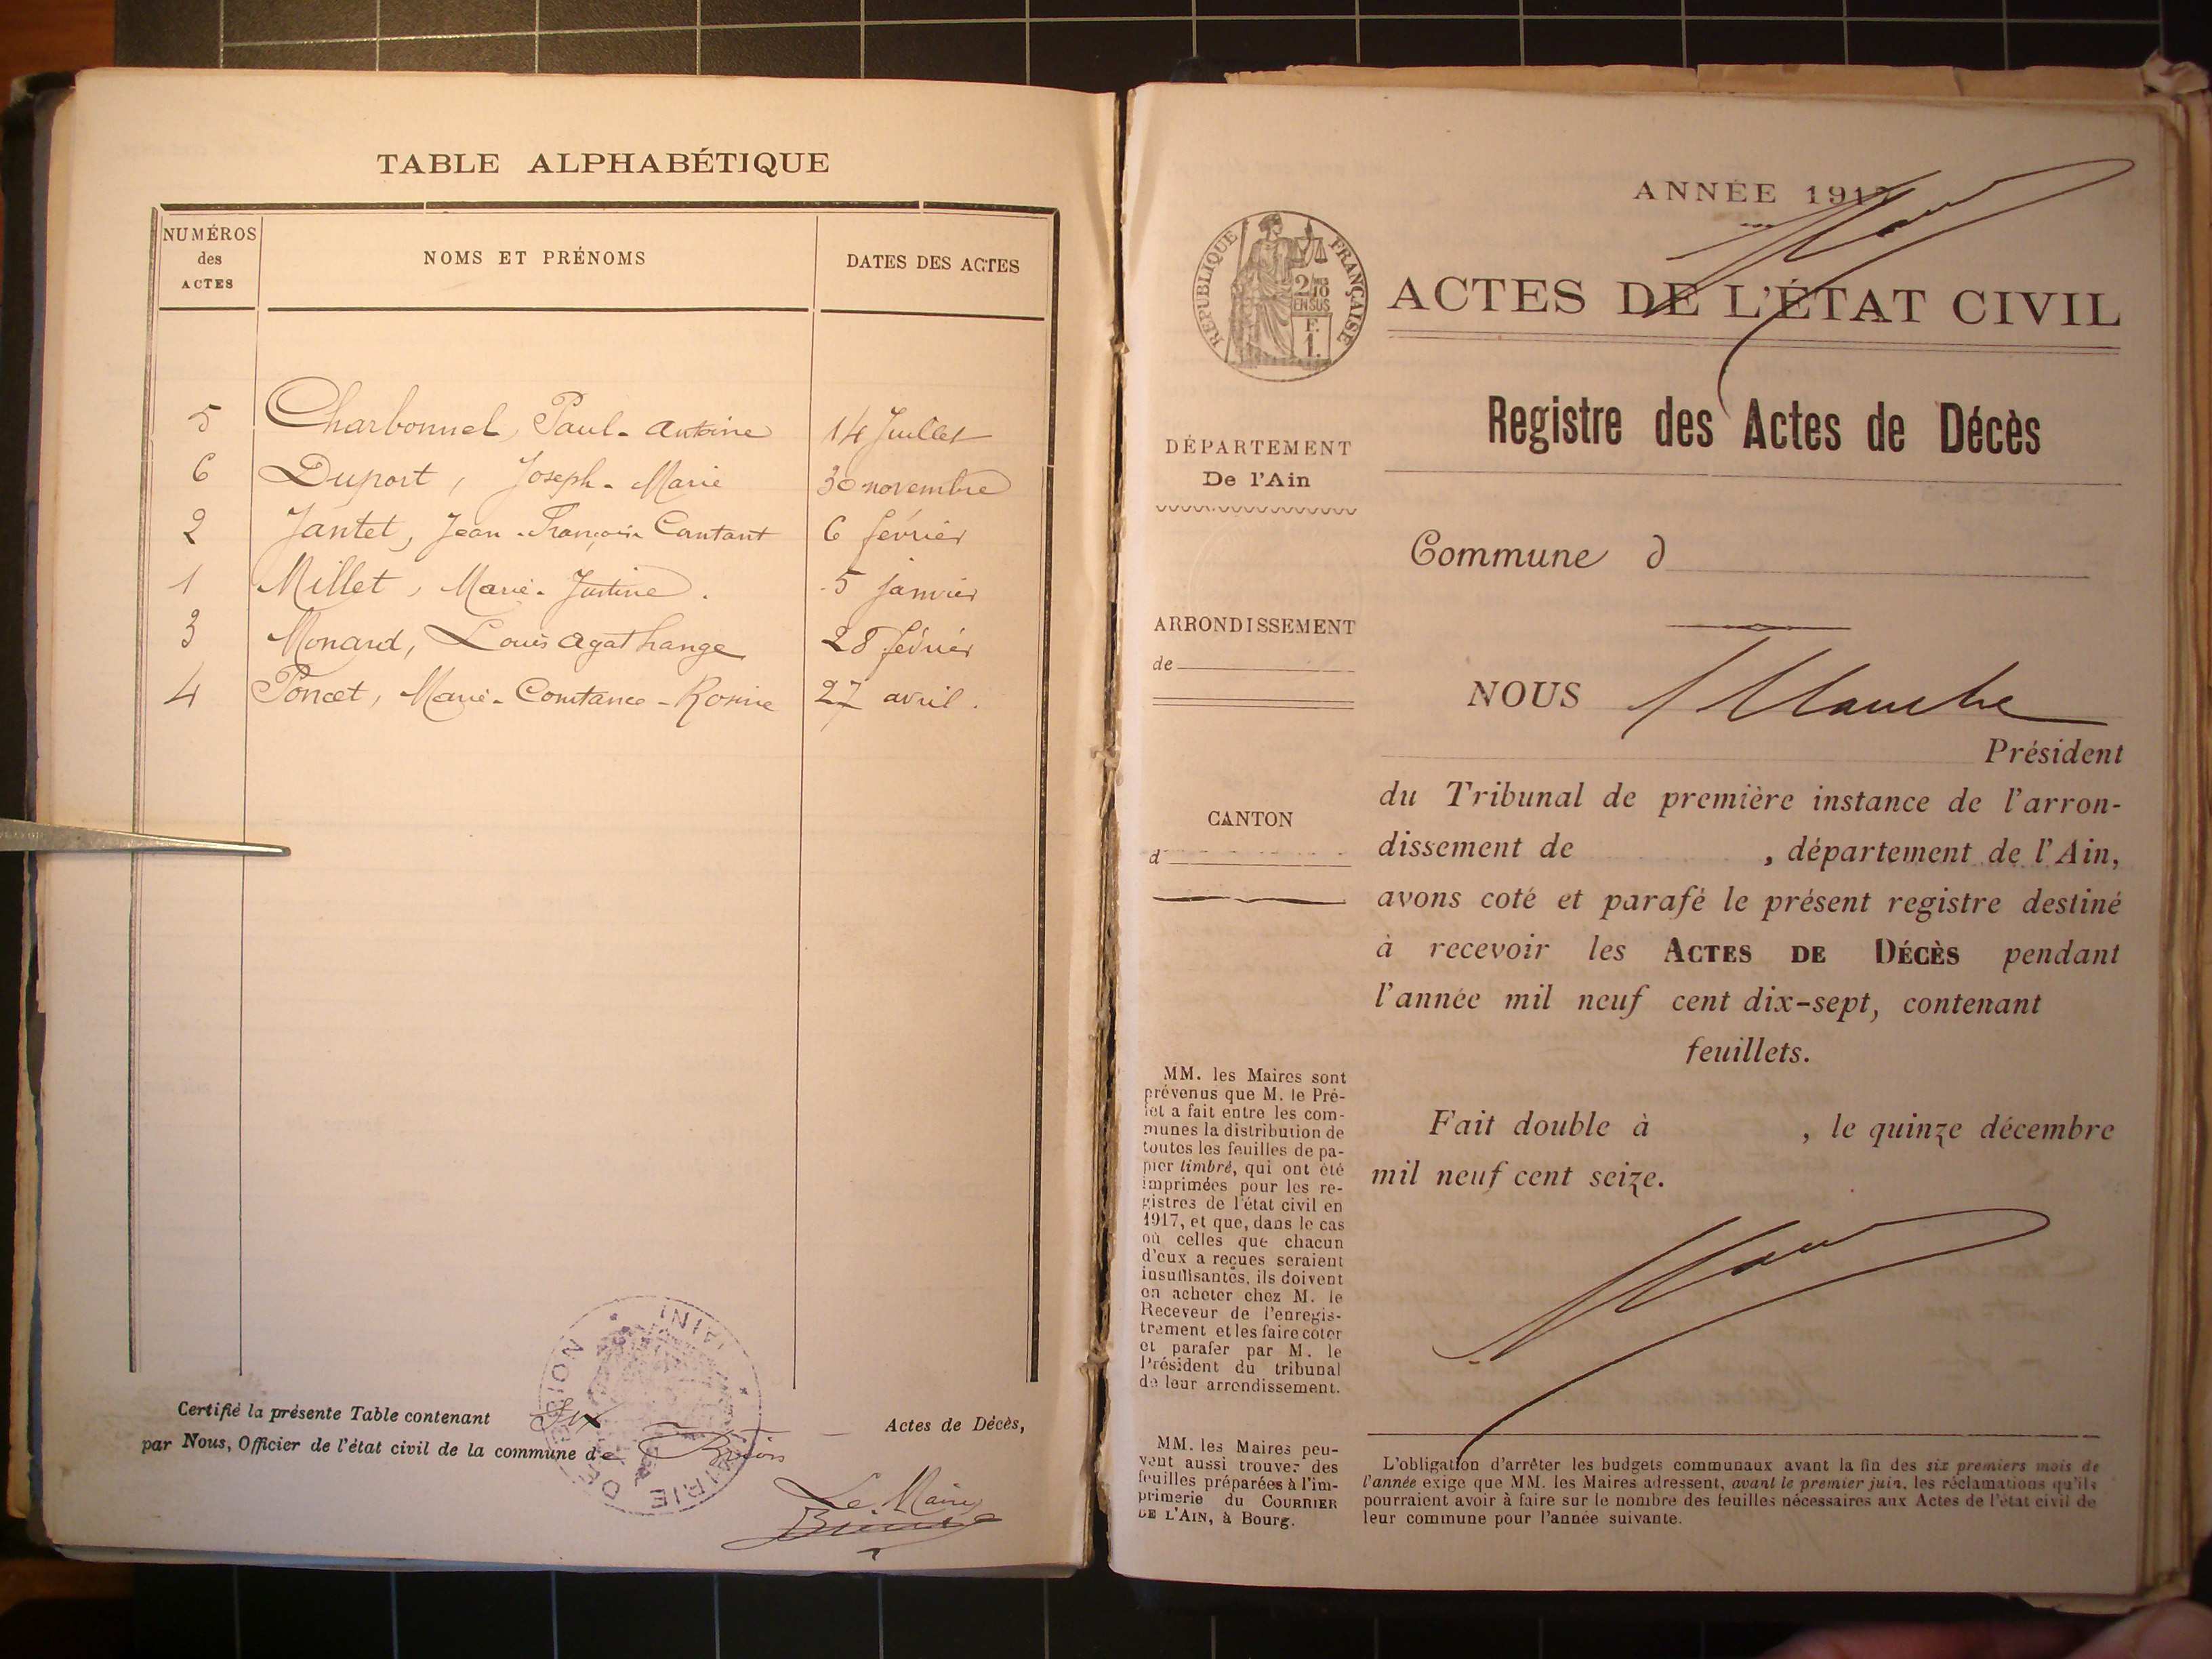 TABLE ALPHABÉTIQUE
NUMÉROS
des
ACTES
NOMS ET PRÉNOMS
DATES DES ACTES
5 Charbonnel, Paul-Antoine 14 Juillet
6 Duport, Joseph-Marie 30 novembre
2 Jantet, Jean-François Constant 6 février
1 Millet, Marie-Justine. 5 janvier
3 Monard, Louis Agathange 28 février
4 Poncet, Marie-Constance-Rosine 27 avril.
Certifié la présente Table contenant Six Actes de Décès,
par Nous, Officier de l'état civil de la commune de
Le Maire
ANNÉE 1917
RÉPUBLIQUE FRANÇAISE
2/10
EN SUS
F.
1.
ACTES DE L'ÉTAT CIVIL
Registre des Actes de Décès
DÉPARTEMENT
De l'Ain
Commune d
ARRONDISSEMENT
de
NOUS
Président
du Tribunal de première instance de l'arron-
CANTON
d
dissement de , département de l'Ain,
avons coté et parafé le présent registre destiné
à recevoir les ACTES DE DÉCÈS pendant
l'année mil neuf cent dix-sept, contenant
feuillets.
Fait double à , le quinze décembre
mil neuf cent seize.
MM. les Maires sont
prévenus que M. le Pré-
fet a fait entre les com-
munes la distribution de
toutes les feuilles de pa-
pier timbré, qui ont été
imprimées pour les re-
gistres de l'état civil en
1917, et que, dans le cas
où celles que chacun
d'eux a reçues seraient
insuffisantes, ils doivent
en acheter chez M. le
Receveur de l'enregis-
trement et les faire coter
et parafer par M. le
Président du tribunal
de leur arrondissement.
MM. les Maires peu-
vent aussi trouver des
feuilles préparées à l'im-
primerie du COURRIER
DE L'AIN, à Bourg.
L'obligation d'arrêter les budgets communaux avant la fin des six premiers mois de
l'année exige que MM. les Maires adressent, avant le premier juin, les réclamations qu'ils
pourraient avoir à faire sur le nombre des feuilles nécessaires aux Actes de l'état civil de
leur commune pour l'année suivante.